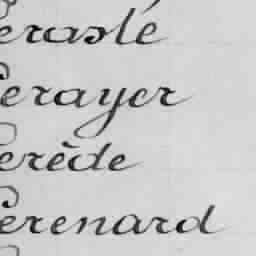 eraslé
erayer
erède
erenard